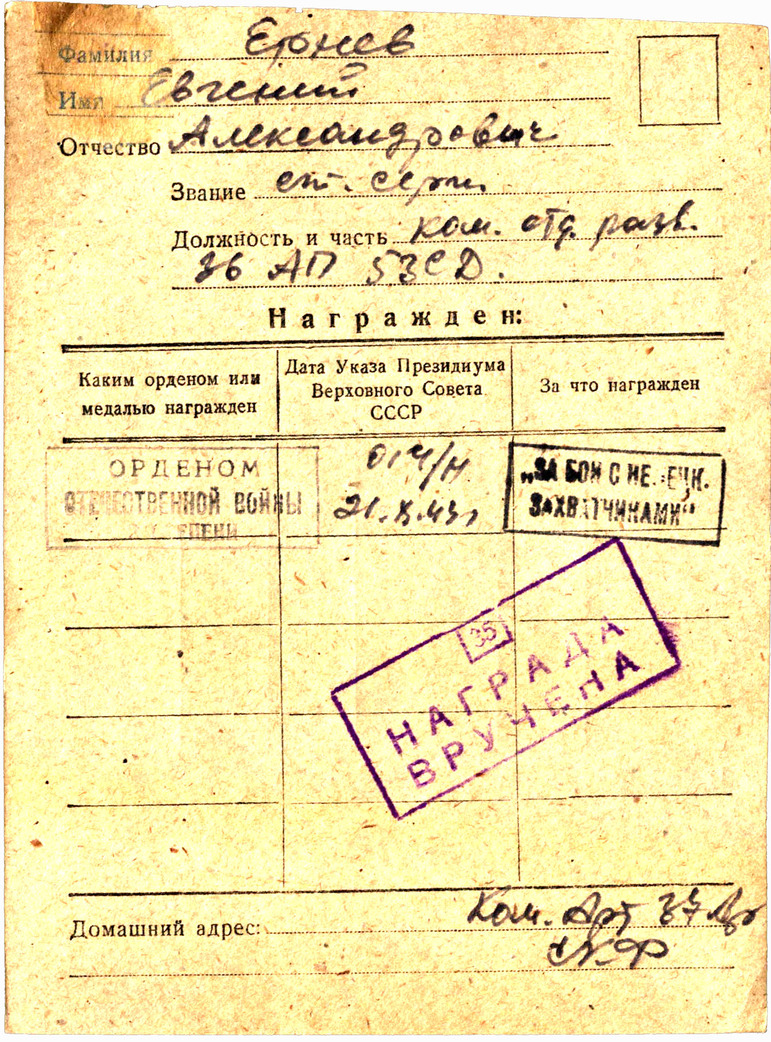 Фамилия Ернев
Имя Евгений
Отчество Александрович
Звание ст. серж.
Должность и часть ком. отд. разв.
36 АП 53СД.
Награжден:
Каким орденом или
медалью награжден
Дата Указа Президиума
Верховного Совета
СССР
За что награжден
ОРДЕНОМ
ОТЕЧЕСТВЕННОЙ ВОЙНЫ
СТЕПЕНИ
014/н
21.X.43г
„ЗА БОИ С НЕМЕЦК.
ЗАХВАТЧИКАМИ“
35
НАГРАДА
ВРУЧЕНА
Домашний адрес: Ком. Арт 37